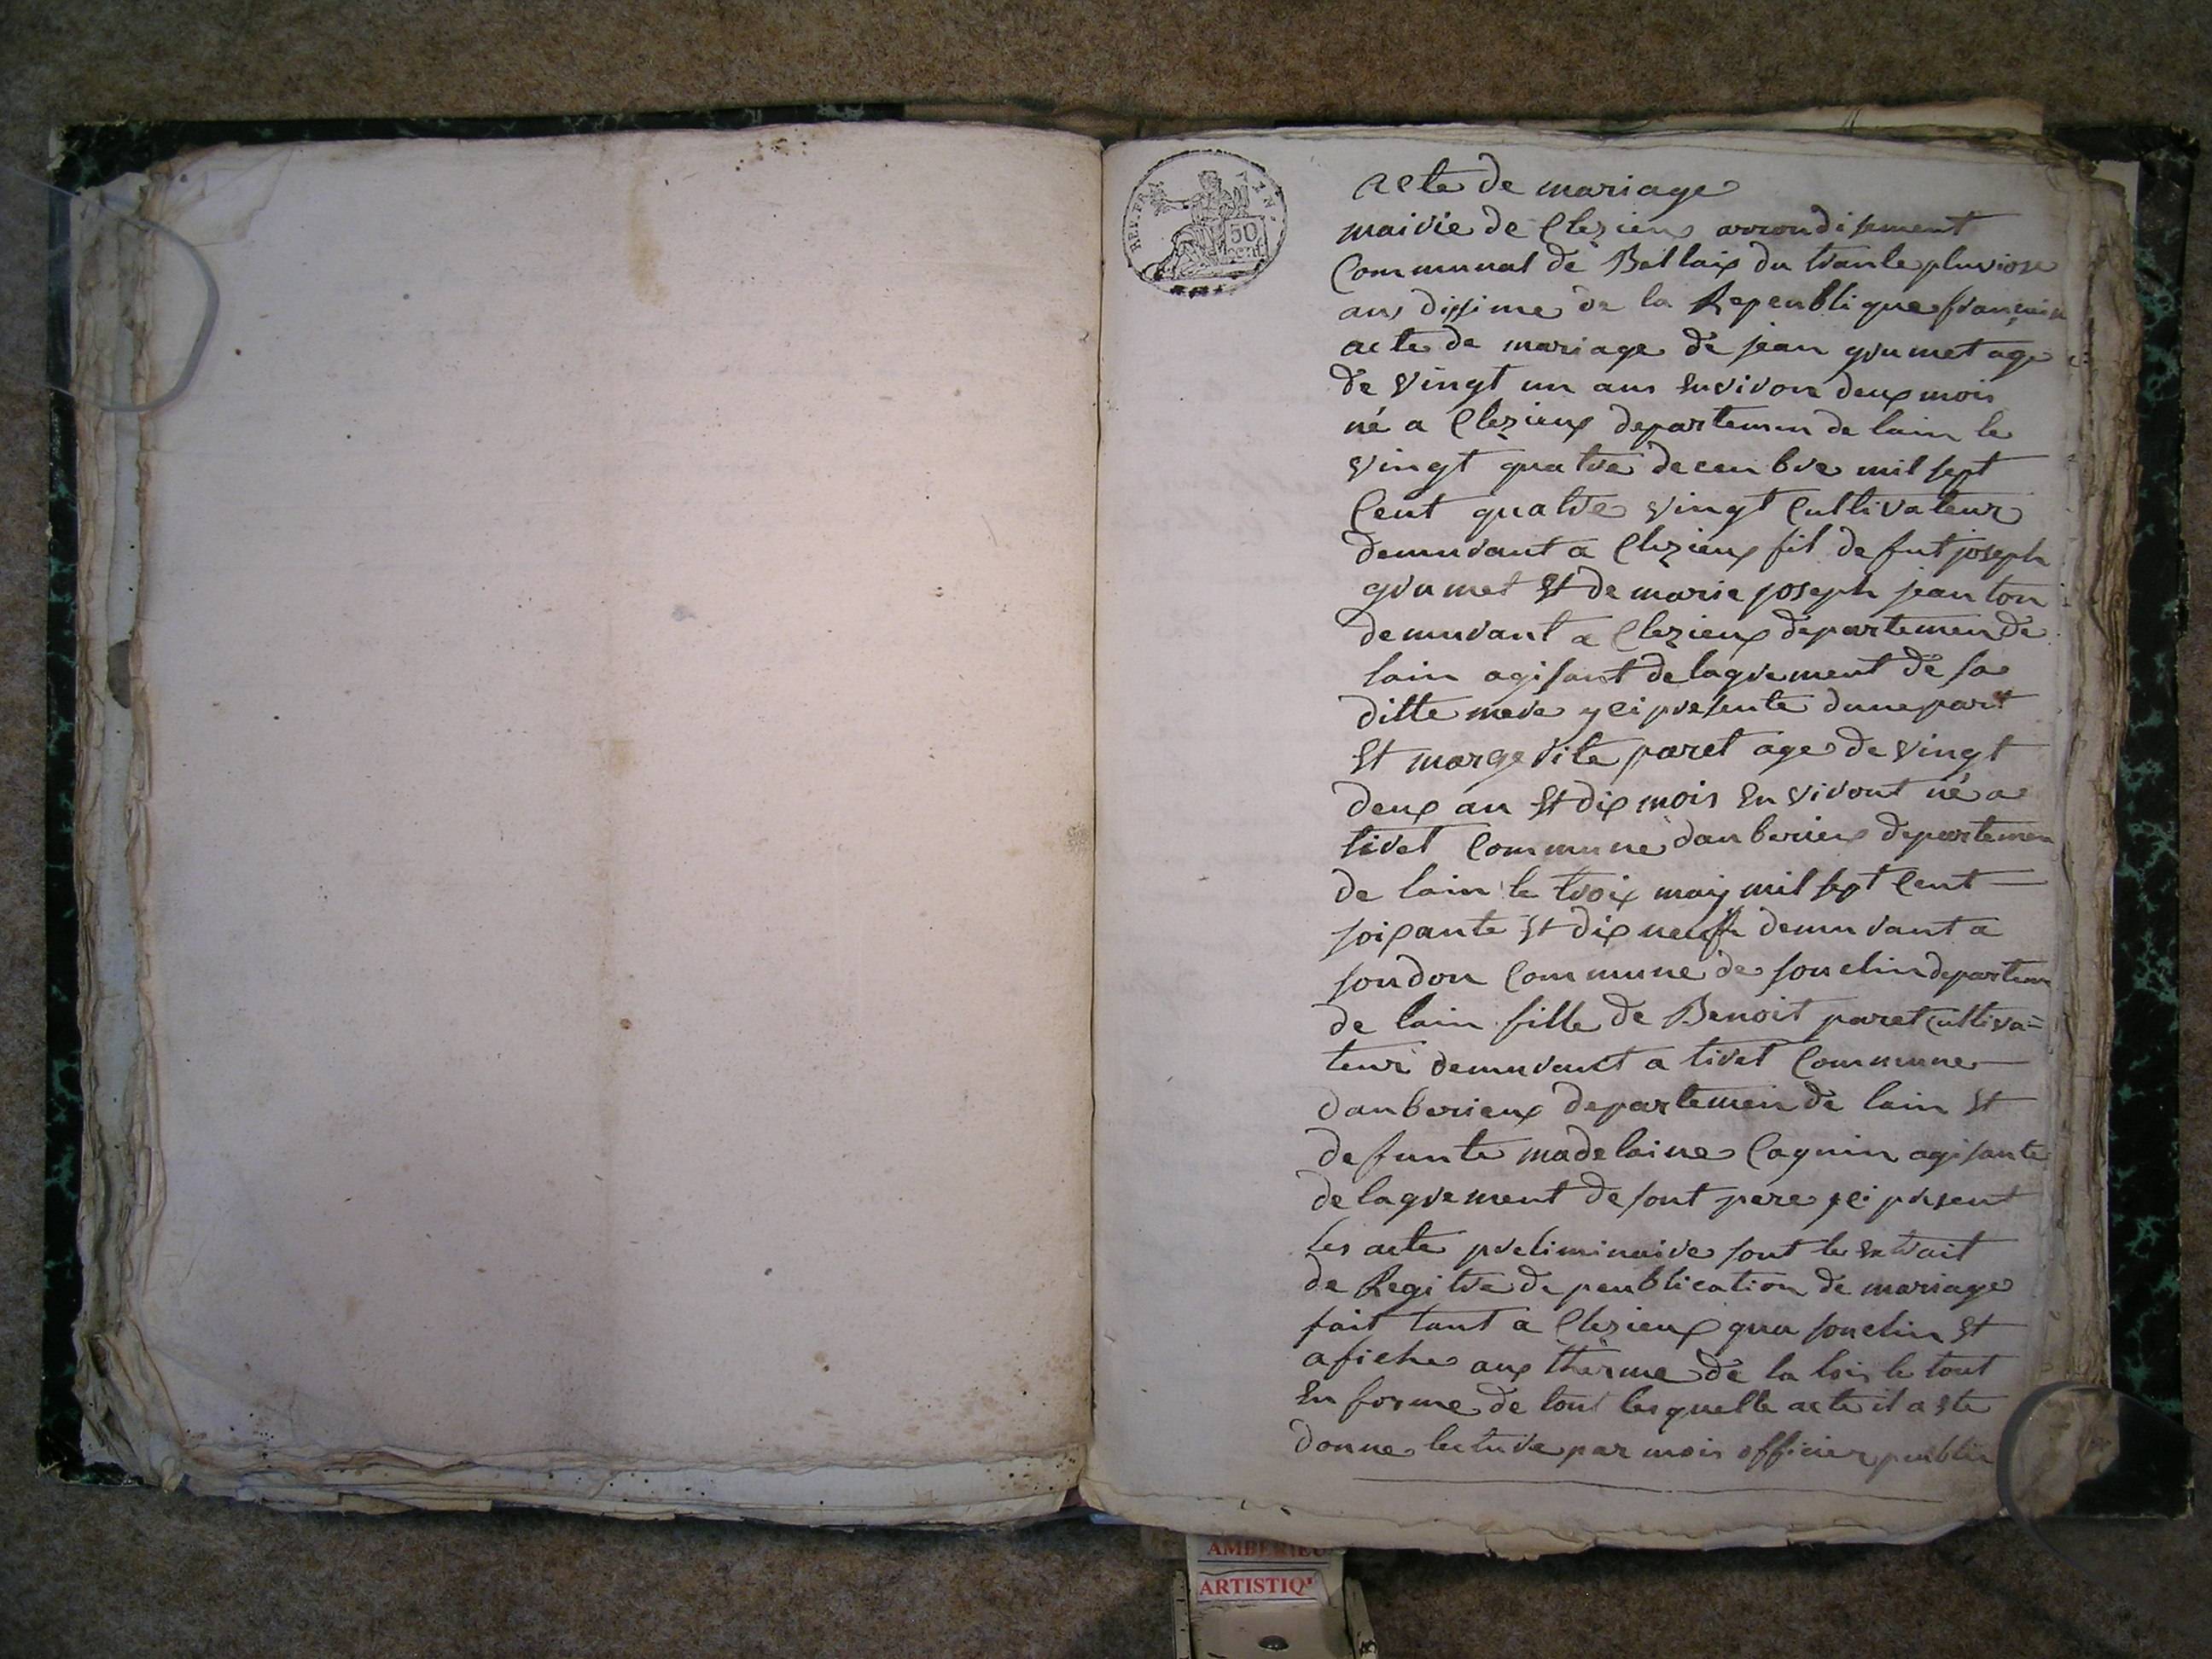 REP. FRA
50
cent
acte de mariage
mairie de Clezieux arrondisement
Communal de Bellaix du trante pluviose
ans dixime de la Repeublique francaise
acte de mariage de jean grumet age
de vingt un ans environ deux mois
né a Clezieux departemen de lain le
vingt quatre decenbre mil sept
Cent quatre vingt Cultivateur
demurant a Clezieux fil de fut joseph
grumet Et de marie joseph jeanton
demurant a Clezieux departemen de
lain agisant de lagrement de sa
ditte mere y ci presente dune part
Et margerite paret age de vingt
deux an Et dix mois En viront né a
tiret Commune danberieux departemen
de lain le troix maiy mil sept Cent
soixante Et dix neuf demurant a
soudon Commune de souclin departem
de lain fille de Benoit paret Cultiva=
teur demurant a tiret Commune
danberieux departemen de lain Et
defunte madelaine Cagnin agisante
de lagrement de sont pere y ci present
les acte preliminaire sont le Extrait
de Regitre de peublication de mariage
fait tant a Clezieux qua souclin Et
afiche aux therme de la lois le tout
En forme de tout lesquelle acte il a ete
donne lecture par mois officier peublic
AMBERIEU
ARTISTIQ